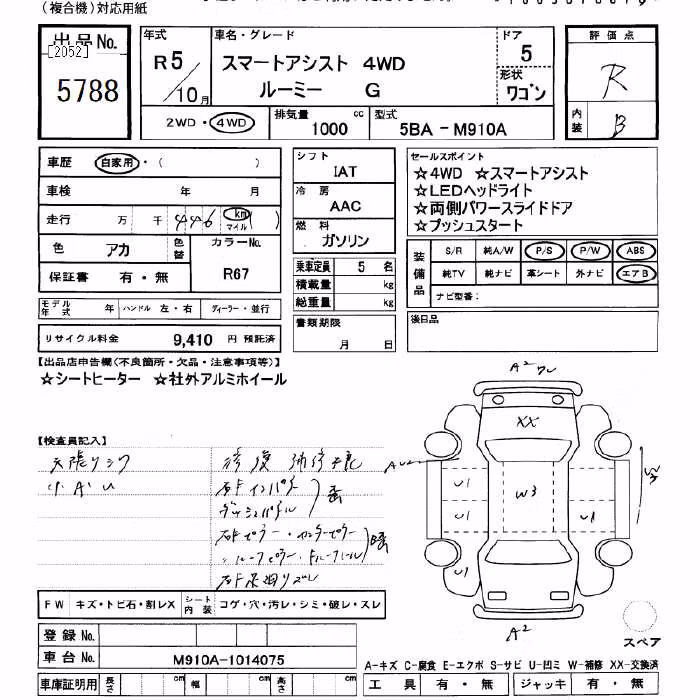 （複合機）対応用紙
出品No.
[2052]
5788
年式
R5
10月
車名・グレード
スマートアシスト 4WD
ルーミー G
ドア
5
形状
ワゴン
評価点
R
内装
B
2WD・4WD
排気量
1000 cc
型式
5BA－M910A
車歴 自家用・（ ）
車検 年 月
走行 万 千 446 km マイル
色 アカ 色替 カラーNo.
R67
保証書 有・無
シフト
IAT
冷房
AAC
燃料
ガソリン
乗車定員 5 名
積載量 kg
総重量 kg
セールスポイント
☆4WD ☆スマートアシスト
☆LEDヘッドライト
☆両側パワースライドドア
☆プッシュスタート
装備品
S/R 純A/W P/S P/W ABS
純TV 純ナビ 革シート 外ナビ エアB
ナビ型番：
モデル年式 年 ハンドル 左・右 ディーラー・並行
リサイクル料金 9,410 円 預託済
書類期限
月 日
後日品
【出品店申告欄（不良箇所・欠品・注意事項等）】
☆シートヒーター ☆社外アルミホイール
【検査員記入】
天張りシワ
小AU
修復
インパネ
ダッシュパネル
A2
XX
U1
W3
U1
U1
U1
A2
スペア
FW キズ・トビ石・割レX シート内装 コゲ・穴・汚レ・シミ・破レ・スレ
登録No.
車台No. M910A-1014075
車庫証明用 長さ cm 幅 cm 高さ cm
A-キズ C-腐食 E-エクボ S-サビ U-凹ミ W-補修 XX-交換済
工具 有・無 ジャッキ 有・無